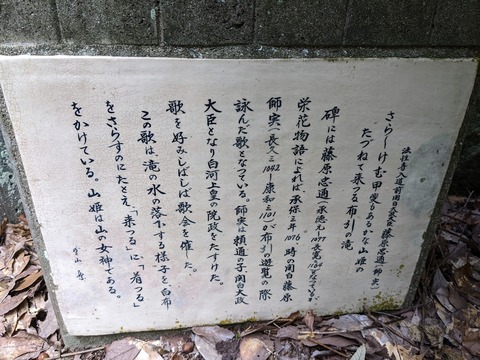 法性寺入道前関白太政大臣 藤原忠通(師実)
さらしけむ甲斐もあるかな山姫の
たづねて来つる布引の滝
碑には藤原忠通(承徳元1097 長寛二1164)となっているが
栄花物語によれば、承保三年1076 時の関白藤原
師実(長久三1042 康和三1101)が布引遊覧の際
詠んだ歌となっている。師実は頼通の子関白太政
大臣となり白河上皇の院政をたすけた。
歌を好みしばしば歌会を催した。
この歌は、滝の水の落下する様子を白布
をさらすのにたとえ、「来つる」に、「着つる」
をかけている。山姫は山の女神である。